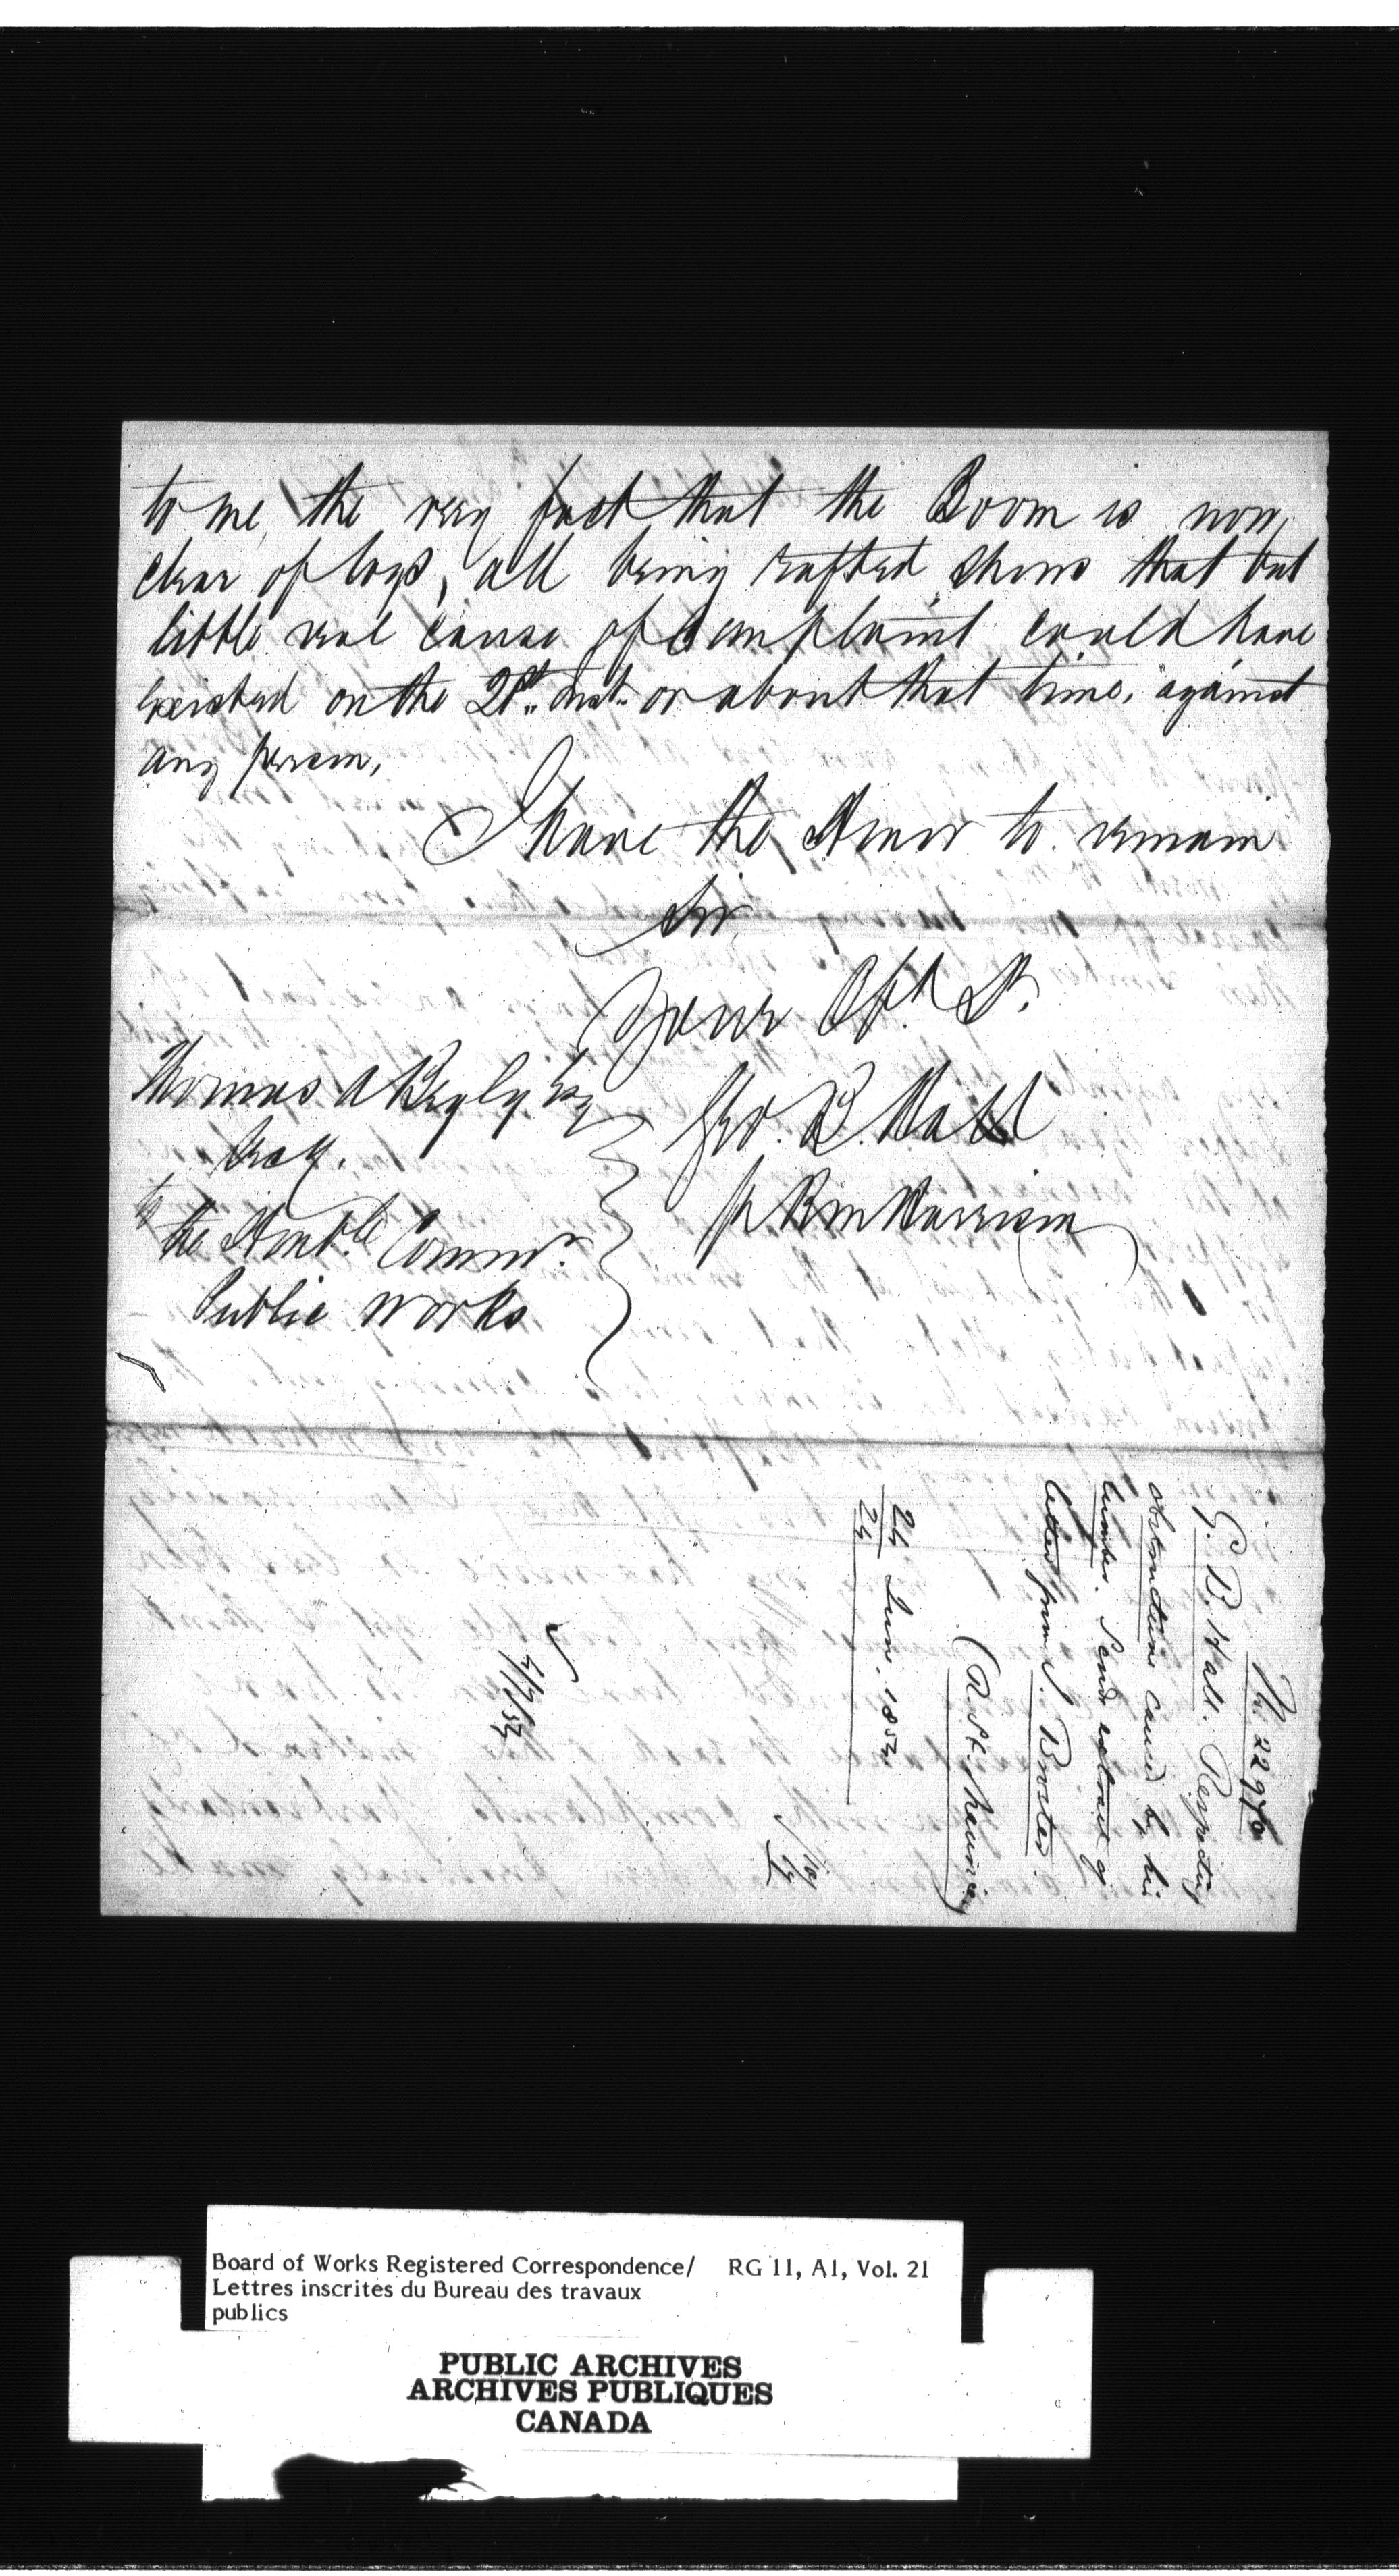 to me, the very fact that the Boom is now,
clear of logs, all being rafted shows that but
little real cause of Complaint could have
existed on the 21st Inst. or about that time, against
any person,
I have the Honor to remain
Sir,
Your Obt St.
Thomas A Begly Esq
Geo. B. Hall
Secy.
pr Harrison
to
the Honble Commrs
Public Works
No 22976
G. B. Hall. Respecting
obstructions caused by his
lumber. Send extract of
letter from J. Porter.
(R. St. Maurice)
24 Jun. 1854
24
4/7/54
Board of Works Registered Correspondence/ RG 11, A1, Vol. 21
Lettres inscrites du Bureau des travaux
publics
PUBLIC ARCHIVES
ARCHIVES PUBLIQUES
CANADA